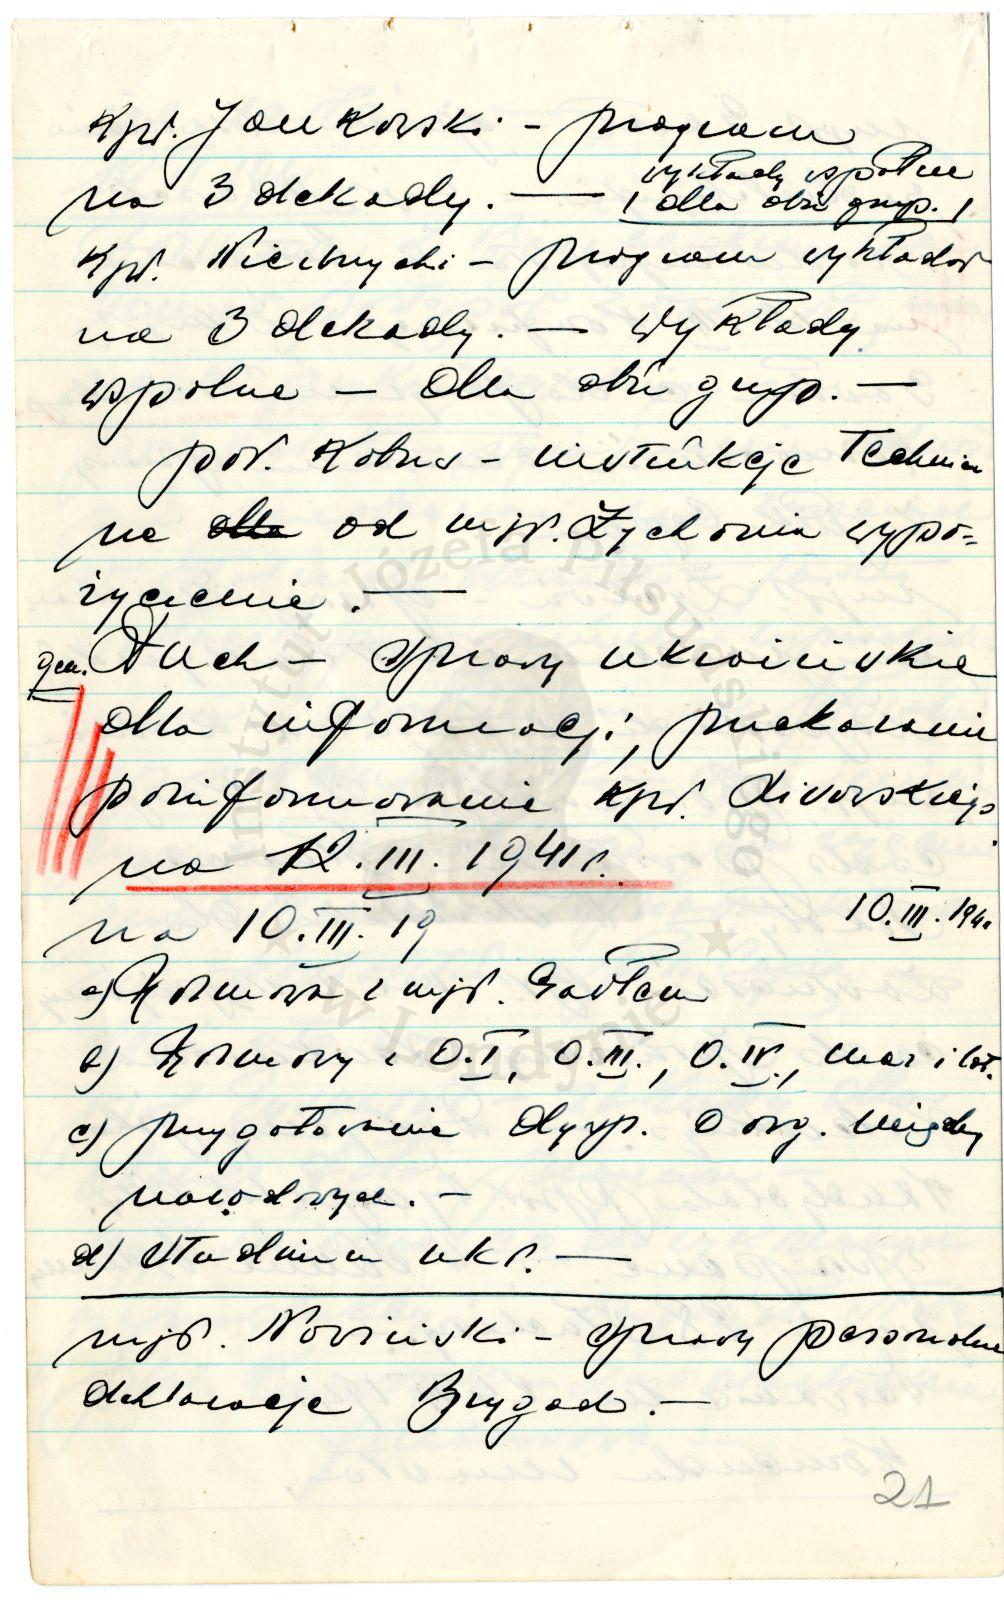 Kpt. Jankowski – program
na 3 dekady. — wykłady wspólne
/ dla obu grup. /
Kpt. Niezbrzycki – program wykładów
na 3 dekady. — Wykłady
wspólne — dla obu grup. —
por. Kobus – instrukcje technicz
ne dla od mjr. Żychonia wypo-
życzenie. —
gen. Duch – sprawy ukraińskie
dla informacji, przekazanie
poinformowanie kpt.
na 12. III. 1941 r.
na 10. III. 19
10. III. 194
a) Rozmowa z mjr.
b) Rozmowy z O.I, O.III., O.IV., mar i lot.
c) przygotowanie dysp. O org. między
narodowych. –
d) Studium ukr. —
mjr. Nowiński – sprawy personalne
deklaracje Brygad. —
21
Instytut Józefa Piłsudskiego
w Londynie